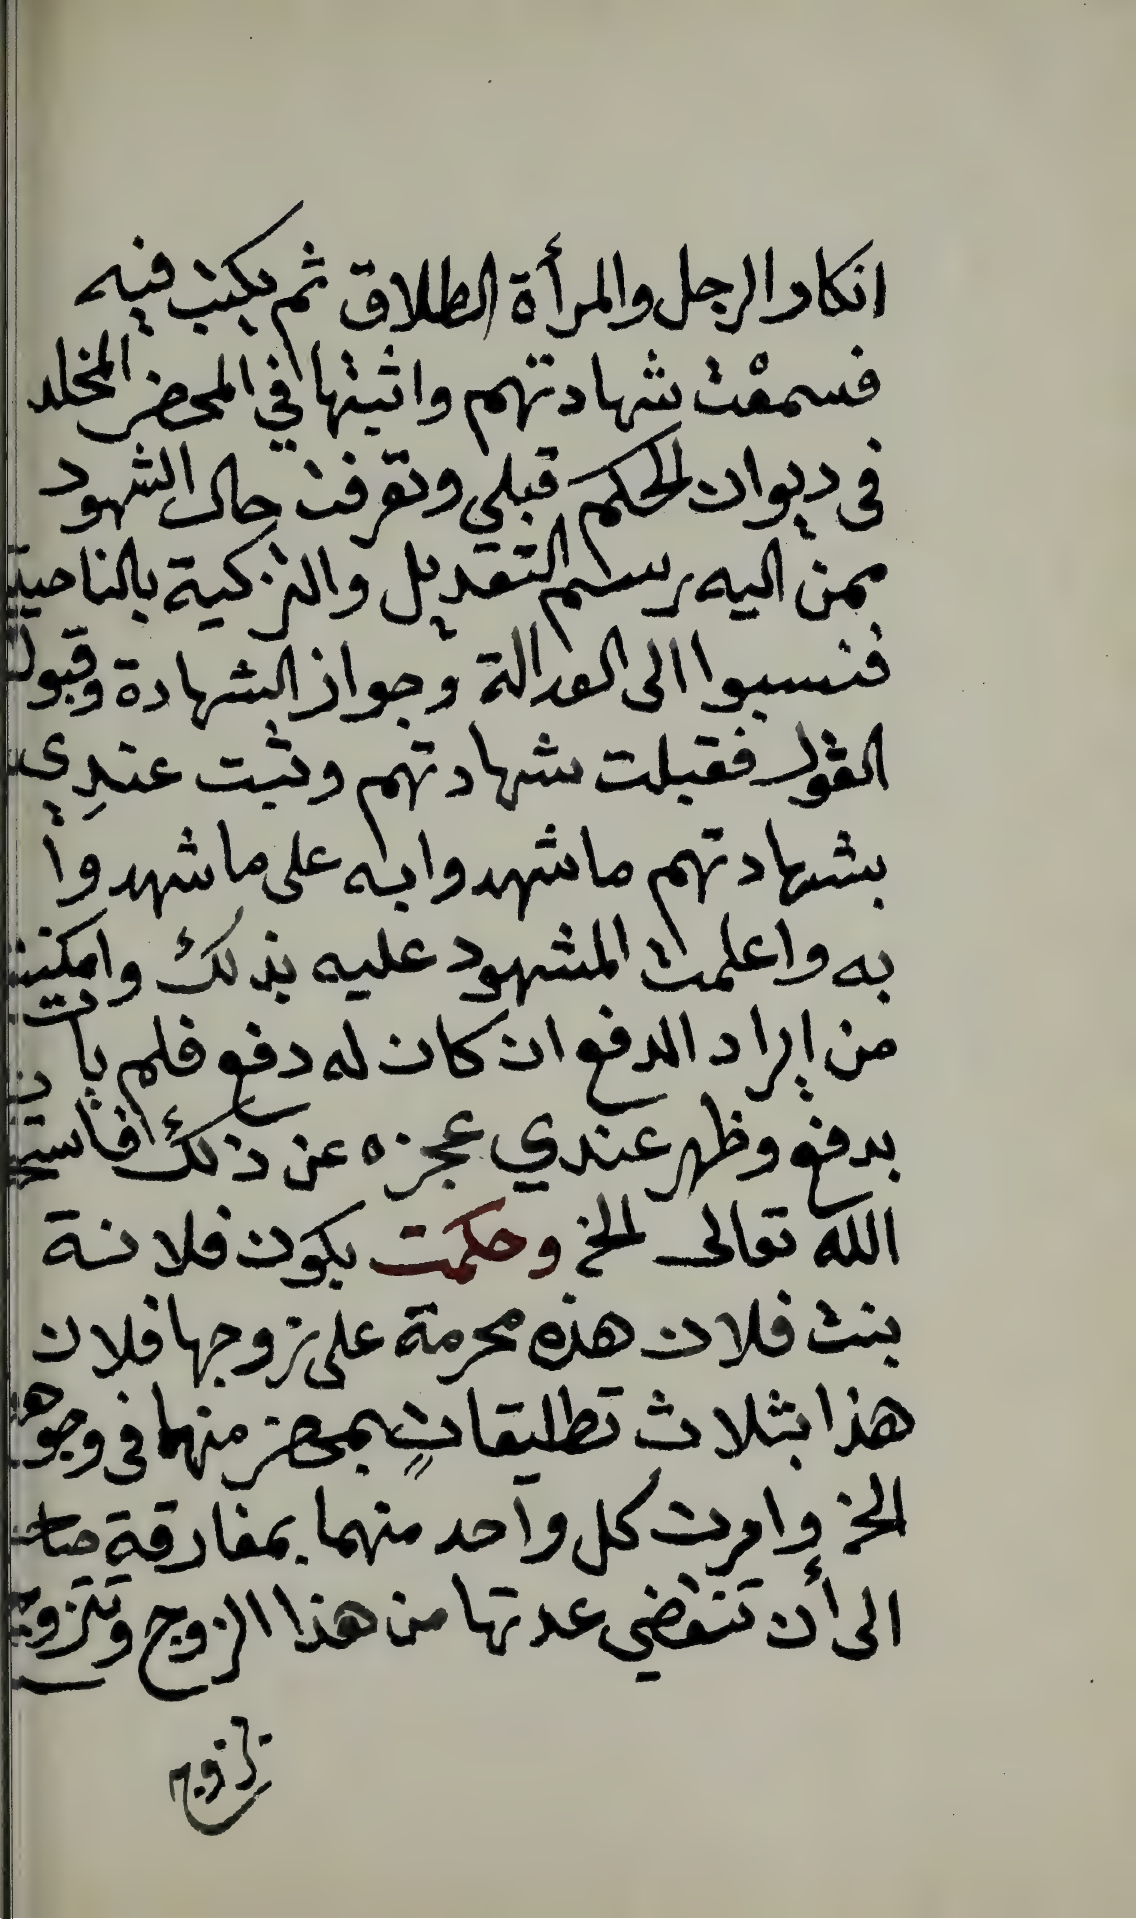 انكار الرجل والمرأة الطلاق ثم يكتب فيه
فسمعْت شهادتهم واثبتها في المحضر المخلد
في ديوان الحكم قبلي وتعرفت حال الشهود
ممن اليه رسم التعديل والتزكية بالناحية
فنسبوا الى العدالة وجواز الشهادة وقبول
القول فقبلت شهادتهم وثبت عندي
بشهادتهم ما شهدوا به على ما شهدوا
به واعلمت المشهود عليه بذلك وامكنت
من إيراد الدفع ان كان له دفع فلم يأت
بدفع وظهر عندي عجزه عن ذلك
الله تعالى الخ وحكمت بكون فلانة
بنت فلان هذه محرمة على زوجها فلان
هذا بثلاث تطليقاتٍ بمحضر منهما في
الخ وامرت كل واحد منهما بمفارقة
الى أن تنقضي عدتها من هذا الزوج وتتزوج